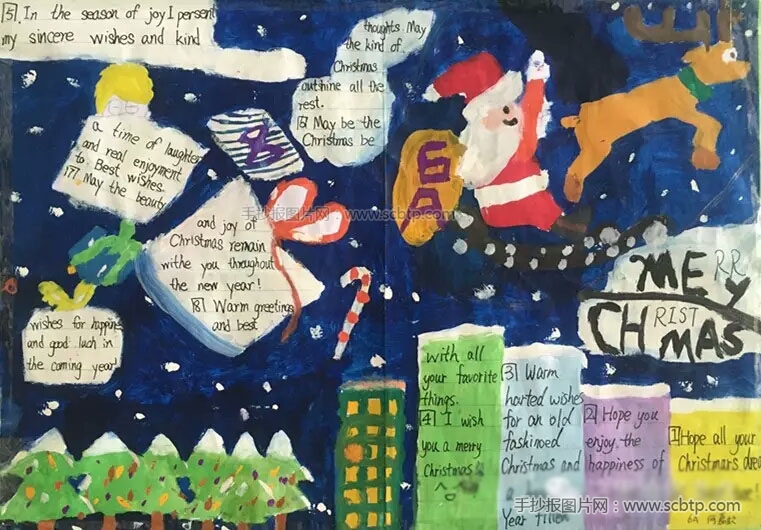 [5]. In the season of joy I persent
my sincere wishes and kind
thoughts May
the kind of
Christmas
outshine all the
rest.
[6] May be the
Christmas be
a time of laughter
and real enjoyment
to. Best wishes.
[7]. May the beauty
and joy of
Christmas remain
withe you throughout
the new year!
[8] Warm greetings
and best
wishes for happine
and good luch in
the coming year!
8
6A
手抄报图片网：www.scbtp.com
MERRY
CHRISTMAS
with all
your favorite
things.
[4] I wish
you a merry
Christmas
[3] Warm
harted wishes
for an old
fashioned
Christmas and
Year filled
[2] Hope you
enjoy the
happiness of
[1] Hope all your
Christmars drea
手抄报图片网：www.scbtp.com
6A